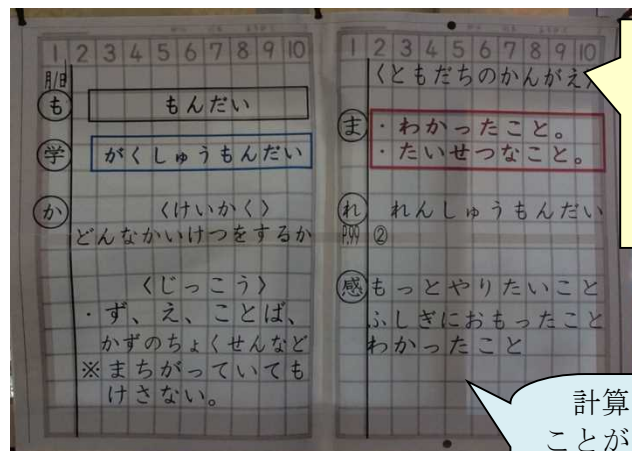 1 2 3 4 5 6 7 8 9 10
月/日
も もんだい
学 がくしゅうもんだい
か 〈けいかく〉
どんなかいけつをするか
〈じっこう〉
・ず、え、ことば、
かずのちょくせんなど
※まちがっていても
けさない。
1 2 3 4 5 6 7 8 9 10
〈ともだちのかんがえ〉
ま ・わかったこと。
・たいせつなこと。
れ れんしゅうもんだい
P.99 ②
感 もっとやりたいこと
ふしぎにおもったこと
わかったこと
計算
ことが